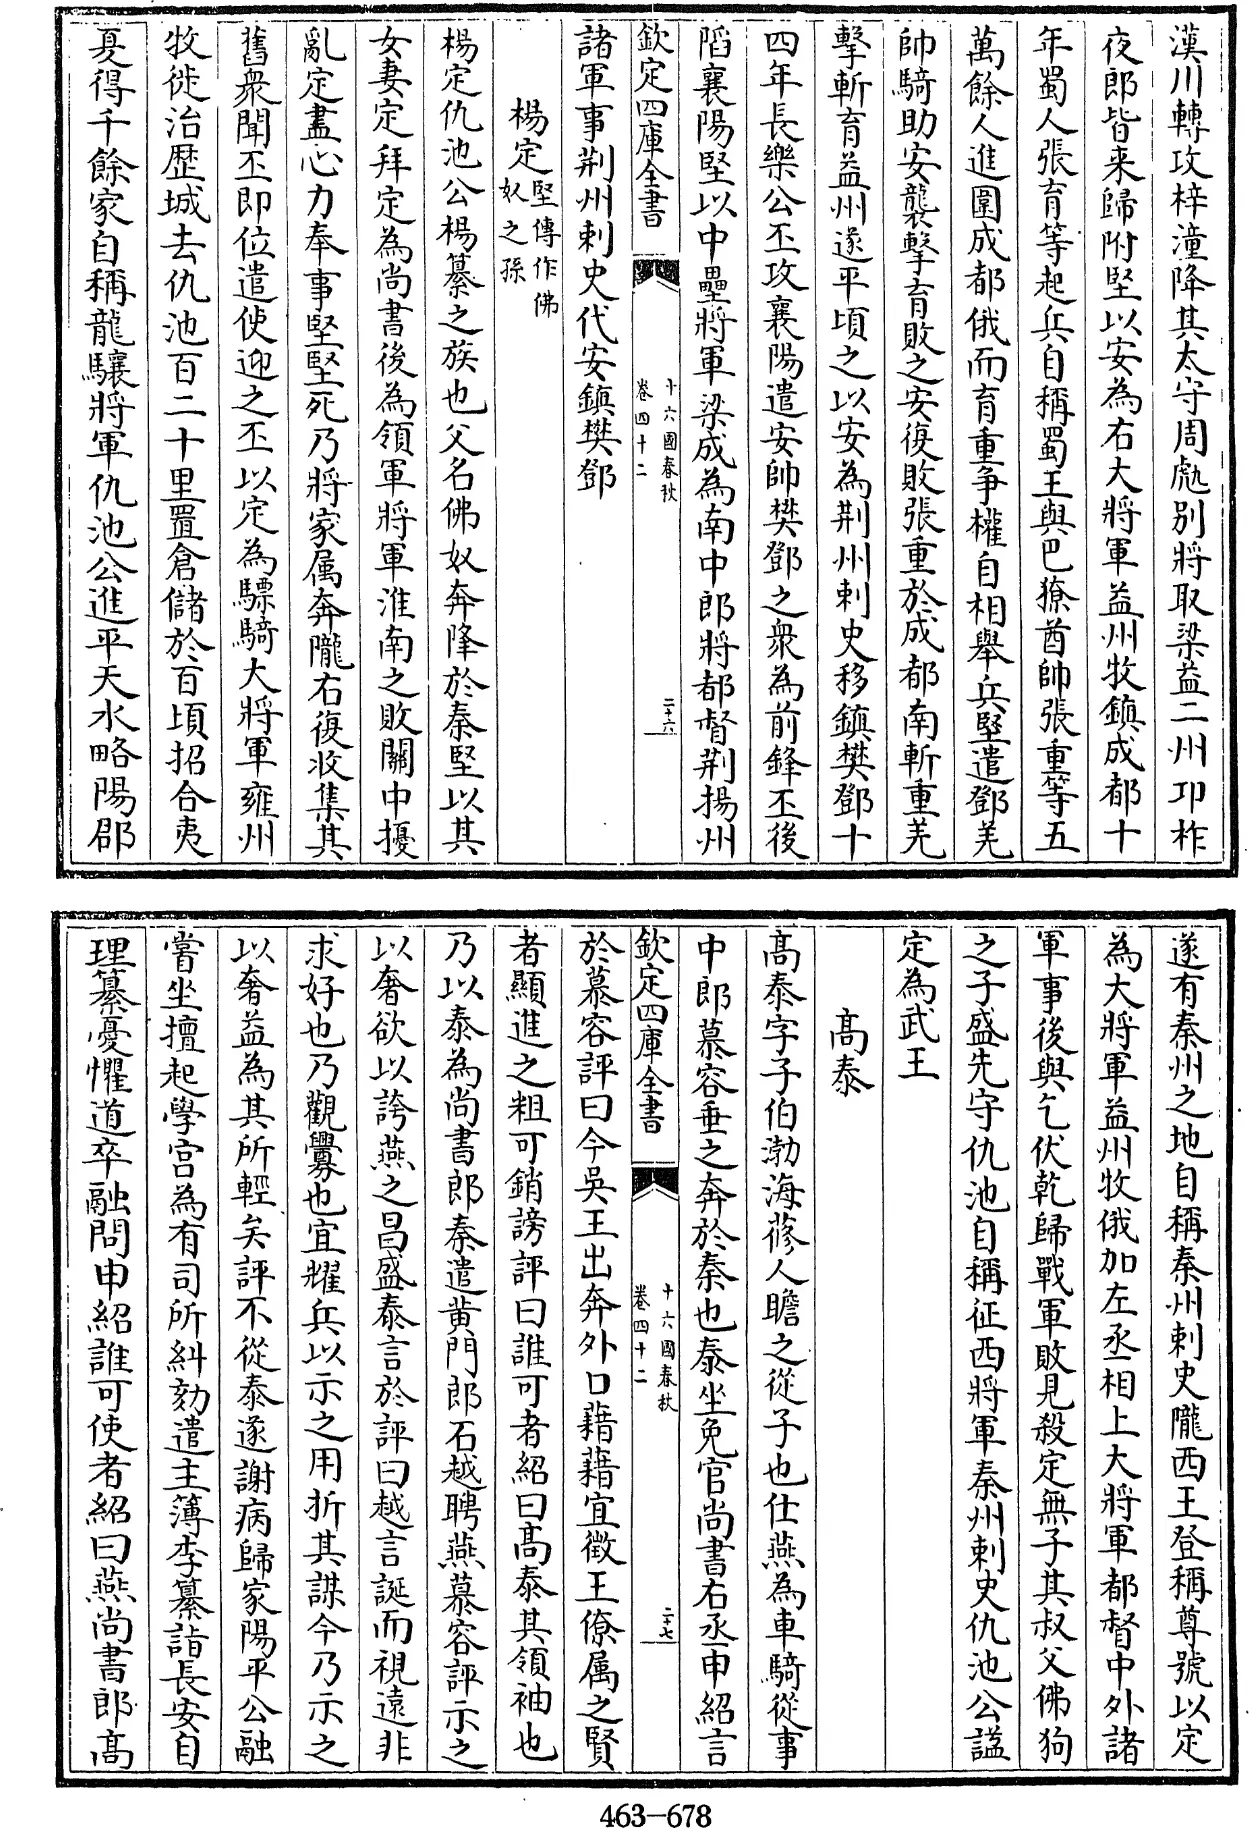 漢川轉攻梓潼降其太守周虓别將取梁益二州邛柞
夜郎皆来歸附堅以安為右大將軍益州牧鎮成都十
年蜀人張育等起兵自稱蜀王與巴獠酋帥張重等五
萬餘人進圍成都俄而育重争權自相舉兵堅遣鄧羌
帥騎助安襲擊育敗之安復敗張重於成都南斬重羌
擊斬育益州遂平頃之以安為荆州刺史移鎮樊鄧十
四年長樂公丕攻襄陽遣安帥樊鄧之衆為前鋒丕後
䧟襄陽堅以中壘將軍梁成為南中郎將都督荆揚州
欽定四庫全書
十六國春秋
卷四十二
二十六
諸軍事荆州刺史代安鎮樊鄧
楊定堅傳作佛
奴之孫
楊定仇池公楊纂之族也父名佛奴奔降於秦堅以其
女妻定拜定為尚書後為領軍將軍淮南之敗關中擾
亂定盡心力奉事堅堅死乃將家属奔隴右復收集其
舊衆聞丕即位遣使迎之丕以定為驃騎大將軍雍州
牧徙治歴城去仇池百二十里置倉儲於百頃招合夷
夏得千餘家自稱龍驤將軍仇池公進平天水略陽郡
遂有秦州之地自稱秦州刺史隴西王登稱尊號以定
為大將軍益州牧俄加左丞相上大將軍都督中外諸
軍事後與乞伏乾歸戰軍敗見殺定無子其叔父佛狗
之子盛先守仇池自稱征西將軍秦州刺史仇池公諡
定為武王
髙泰
髙泰字子伯渤海蓨人瞻之從子也仕燕為車騎從事
中郎慕容垂之奔於秦也泰坐免官尚書右丞申紹言
欽定四庫全書
十六國春秋
卷四十二
二十七
於慕容評曰今吳王出奔外口藉藉宜徵王僚属之賢
者顯進之粗可銷謗評曰誰可者紹曰髙泰其領袖也
乃以泰為尚書郎秦遣黄門郎石越聘燕慕容評示之
以奢欲以誇燕之昌盛泰言於評曰越言誕而視遠非
求好也乃觀釁也宜耀兵以示之用折其謀今乃示之
以奢益為其所輕矣評不從泰遂謝病歸家陽平公融
嘗坐擅起學宫為有司所糾劾遣主簿李纂詣長安自
理纂憂懼道卒融問申紹誰可使者紹曰燕尚書郎髙
463-678